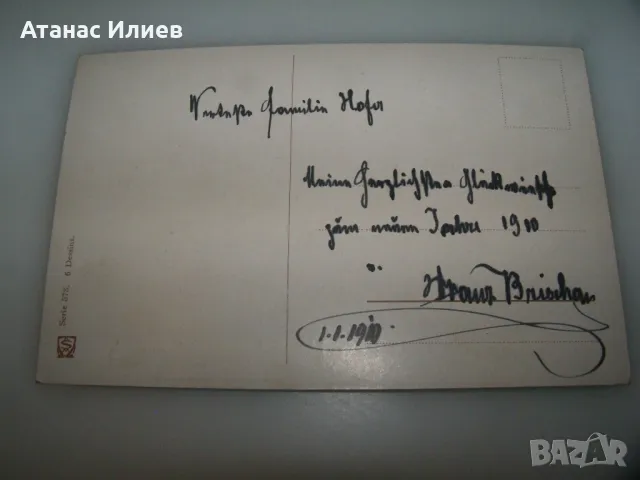 Атанас Илиев
Werteste Familie Hofa
Meine Herzlichsten Glückwünsche
zum neuen Jahre 1910
Franz
1.1.1910.
Serie 375. 6 Dessins.
BAZAR
bg